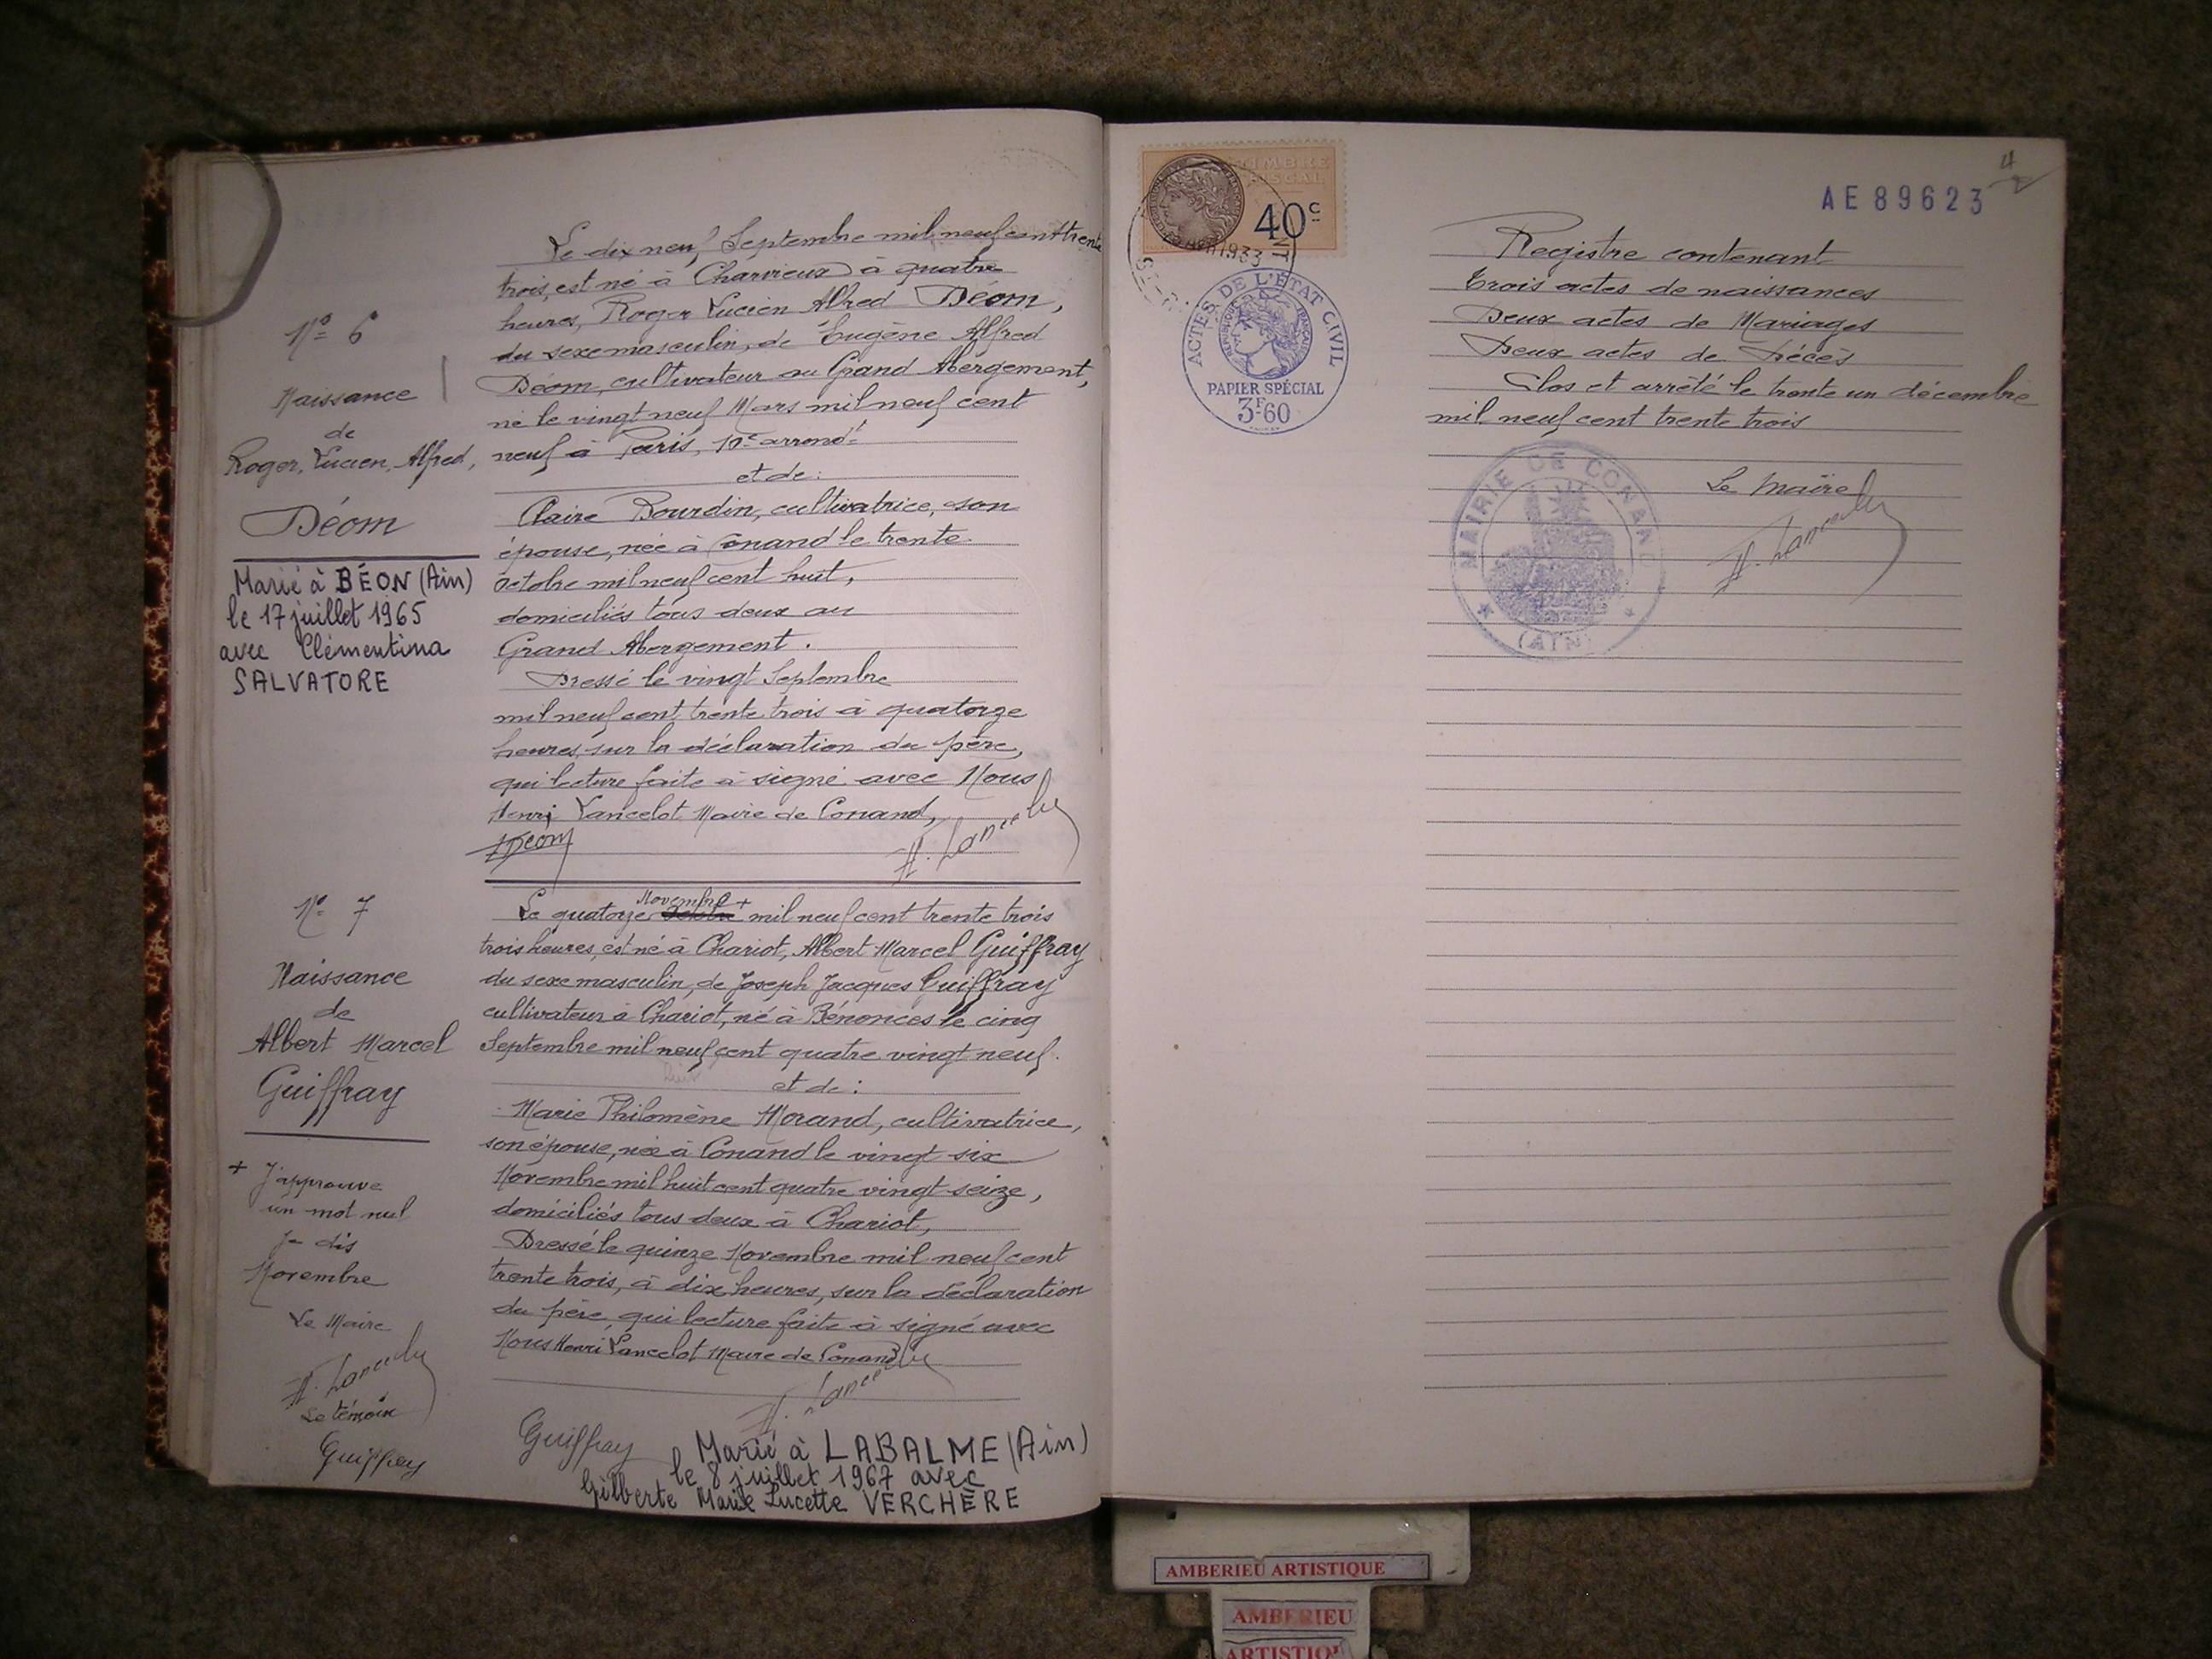 Le dix neuf Septembre mil neuf cent trente
trois, est né à Charvieux à quatre
heures, Roger Lucien Alfred Déom,
du sexe masculin, de Eugène Alfred
Déom, cultivateur au Grand Abergement,
né le vingt neuf Mars mil neuf cent
neuf à Paris, 10e arrondt
et de:
Claire Bourdin, cultivatrice, son
épouse, née à Conand le trente
Octobre mil neuf cent huit,
domiciliés tous deux au
Grand Abergement.
Dressé le vingt Septembre
mil neuf cent trente trois à quatorze
heures, sur la déclaration du père,
qui lecture faite à signé avec Nous
Henri Lancelot Maire de Conand,
Déom
H. Lancelot
No 6
Naissance
de
Roger, Lucien, Alfred,
Déom
Marié à BÉON (Ain)
le 17 juillet 1965
avec Clémentina
SALVATORE
Novembre +
Le quatorze Octobre mil neuf cent trente trois
trois heures, est né à Chariot, Albert Marcel Guiffray
du sexe masculin, de Joseph Jacques Guiffray
cultivateur à Chariot, né à Bénonces le cinq
Septembre mil neuf cent quatre vingt neuf.
huit
et de:
Marie Philomène Morand, cultivatrice,
son épouse, née à Conand le vingt six
Novembre mil huit cent quatre vingt seize,
domiciliés tous deux à Chariot,
Dressé le quinze Novembre mil neuf cent
trente trois, à dix heures, sur la déclaration
du père, qui lecture faite à signé avec
Nous Henri Lancelot Maire de Conand
H. Lancelot
Guiffray
Marié à LABALME (Ain)
le 8 juillet 1967 avec
Gilberte Marie Lucette VERCHÈRE
No 7
Naissance
de
Albert Marcel
Guiffray
+ J'approuve
un mot nul
Je dis
Novembre
Le Maire
H. Lancelot
Le témoin
Guiffray
TIMBRE
FISCAL
40c
1933
ACTES DE L'ÉTAT CIVIL
RÉPUBLIQUE FRANÇAISE
PAPIER SPÉCIAL
3F60
4
AE89623
Registre contenant
trois actes de naissances
Deux actes de Mariages
Deux actes de Décès
Clos et arrêté le trente un décembre
mil neuf cent trente trois
Le Maire
H. Lancelot
MAIRIE DE CONAND
(AIN)
AMBERIEU ARTISTIQUE
AMBERIEU
ARTISTIQU